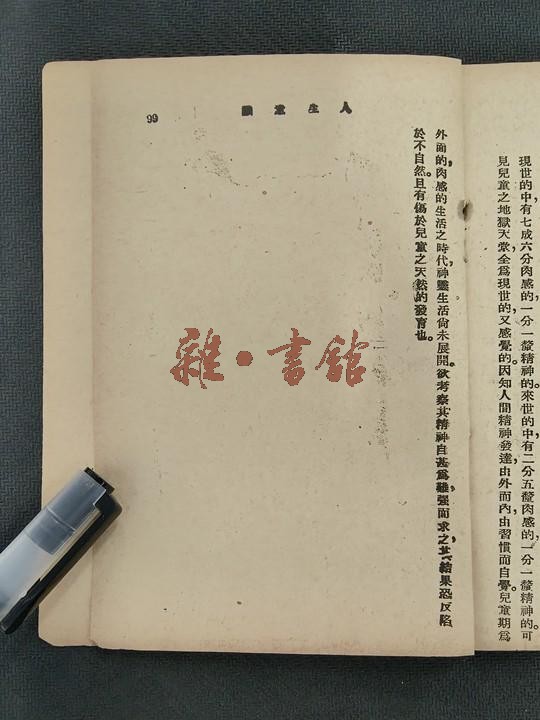 現世的中,有七成六分肉感的,一分一釐精神的。來世的中,有二分五釐肉感的,一分一釐精神的。可
見兒童之地獄天堂,全爲現世的,又感覺的。因知人間精神發達,由外而內,由習慣而自覺。兒童期爲
人生意
99
外面的,肉感的生活之時代,神靈生活尙未展開。欲考察其精神,自甚爲難,强而求之,其結果恐反陷
於不自然。且有傷於兒童之天然的發育也。
雜·書館